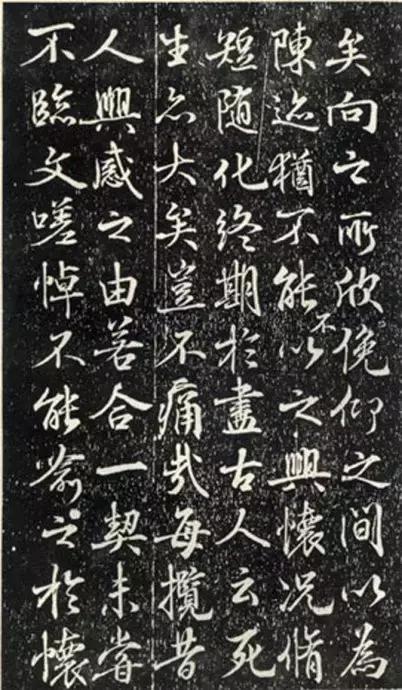 矣向之所欣俛仰之間以為
陳迹猶不能不以之興懷况脩
短隨化終期於盡古人云死
生亦大矣豈不痛哉每攬昔
人興感之由若合一契未嘗
不臨文嗟悼不能喻之於懷